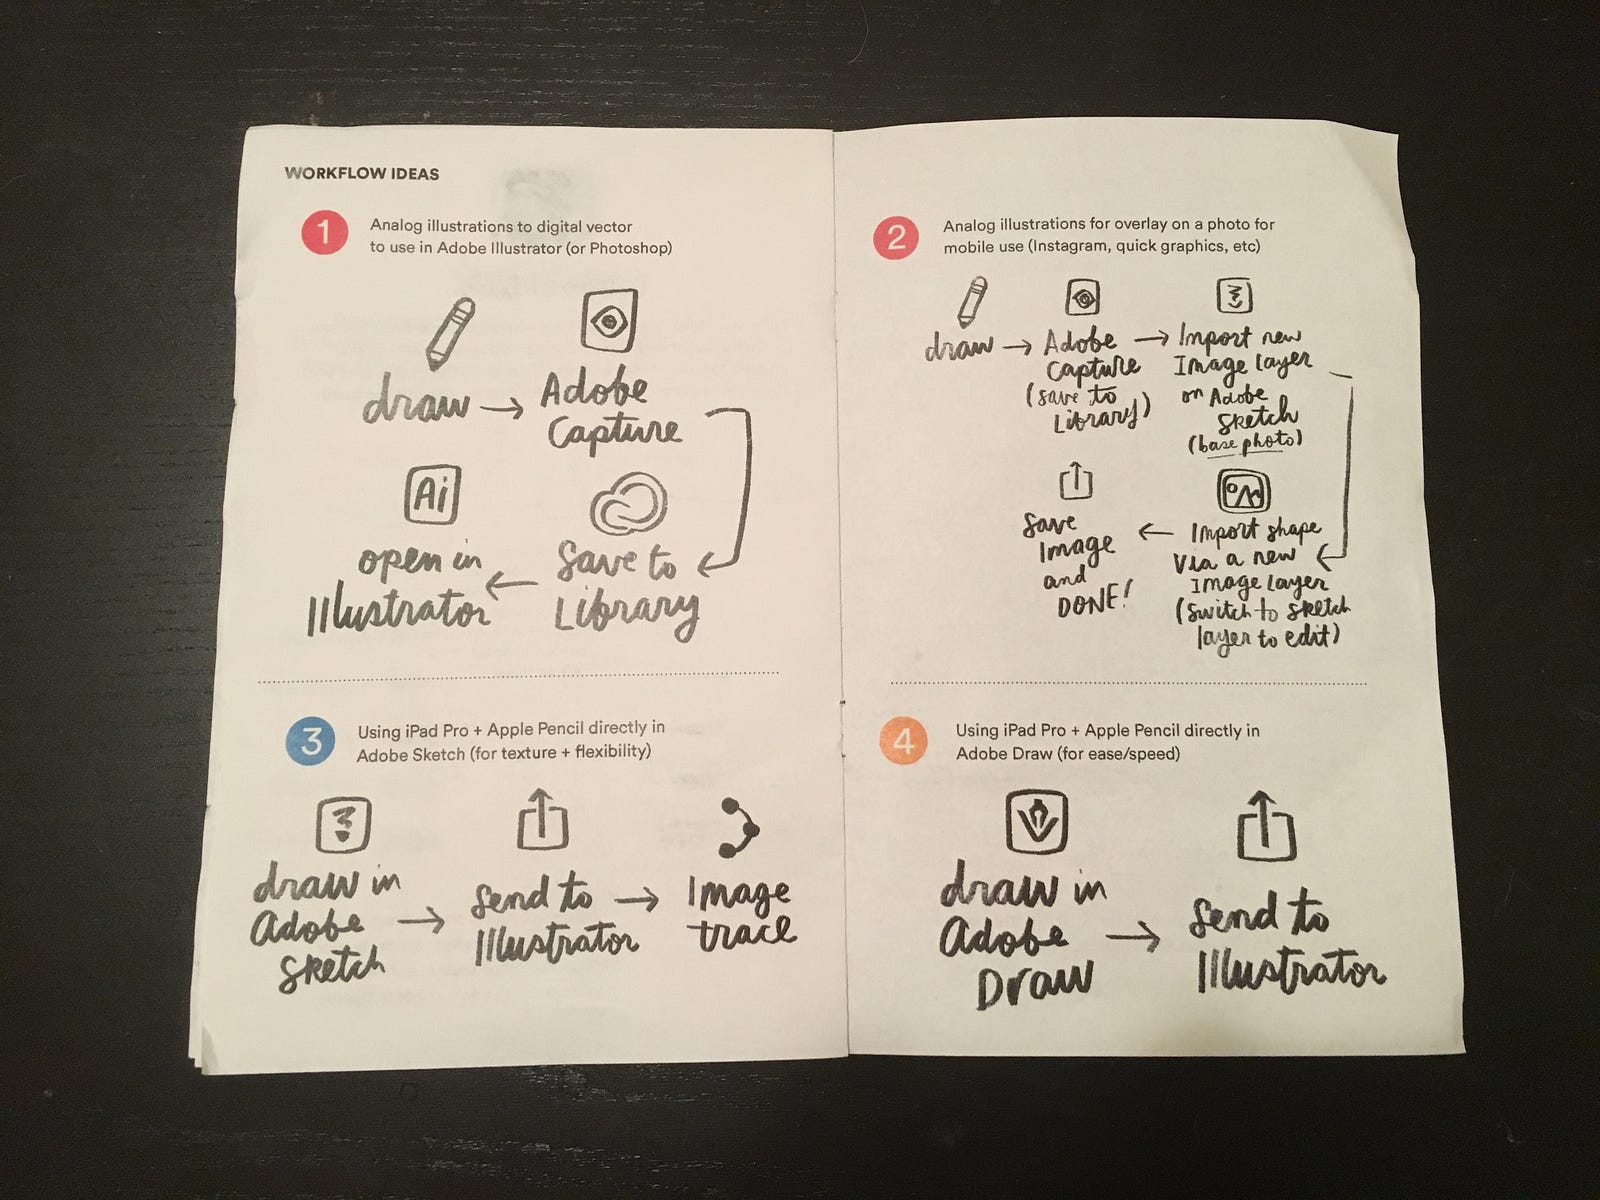 WORKFLOW IDEAS
1
Analog illustrations to digital vector
to use in Adobe Illustrator (or Photoshop)
draw → Adobe
Capture
Save to
Library
Ai
open in
Illustrator
2
Analog illustrations for overlay on a photo for
mobile use (Instagram, quick graphics, etc)
draw → Adobe
Capture
(save to
Library)
→ Import new
Image layer
on Adobe
Sketch
(base photo)
Import shape
Via a new
Image layer
(switch to sketch
layer to edit)
← Save
Image
and
DONE!
3
Using iPad Pro + Apple Pencil directly in
Adobe Sketch (for texture + flexibility)
draw in
Adobe
Sketch
→ Send to
Illustrator
→ Image
trace
4
Using iPad Pro + Apple Pencil directly in
Adobe Draw (for ease/speed)
draw in
Adobe
Draw
→ Send to
Illustrator